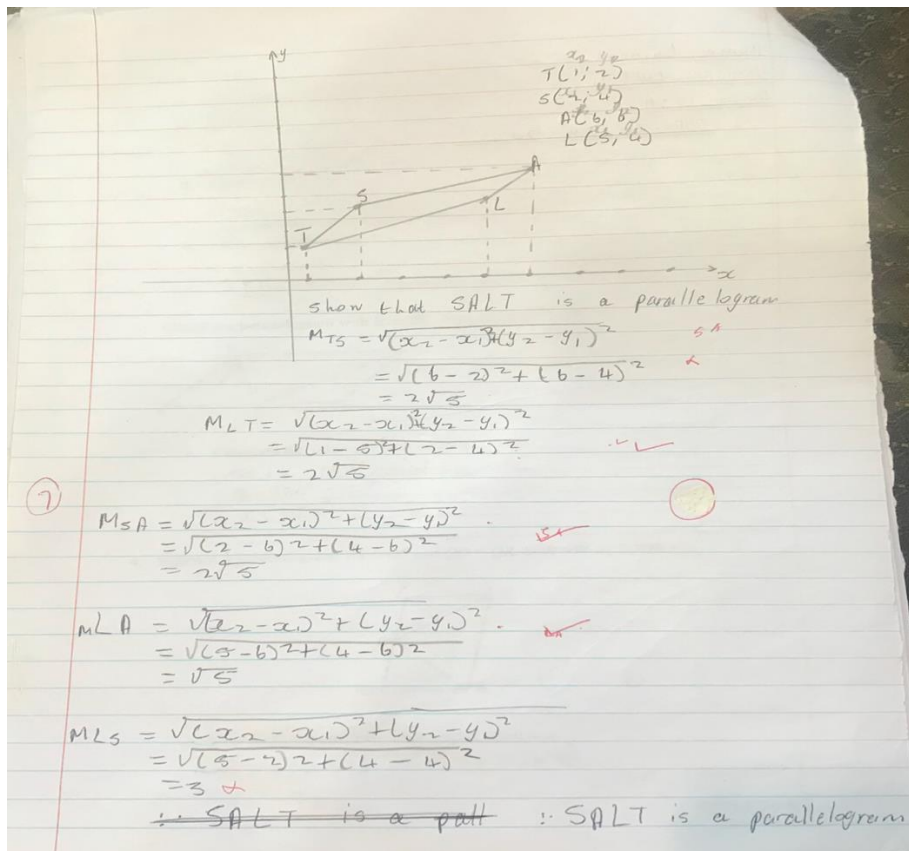 y
T(1; 2)
S(2; 4)
A(6; 6)
L(5; 4)
A
S
L
T
x
show that SALT is a parallelogram
MTS = √(x2 - x1)²+(y2 - y1)²
SA
= √(6 - 2)² + (6 - 4)²
= 2√5
MLT = √(x2 - x1)²+(y2 - y1)²
= √(1 - 5)²+(2 - 4)²
= 2√5
7
MSA = √(x2 - x1)² + (y2 - y1)²
= √(2 - 6)² + (4 - 6)²
= 2√5
MLA = √(x2 - x1)² + (y2 - y1)²
= √(5 - 6)² + (4 - 6)²
= √5
MLS = √(x2 - x1)² + (y2 - y1)²
= √(5 - 2)² + (4 - 4)²
= 3
∴ SALT is a pall ∴ SALT is a parallelogram